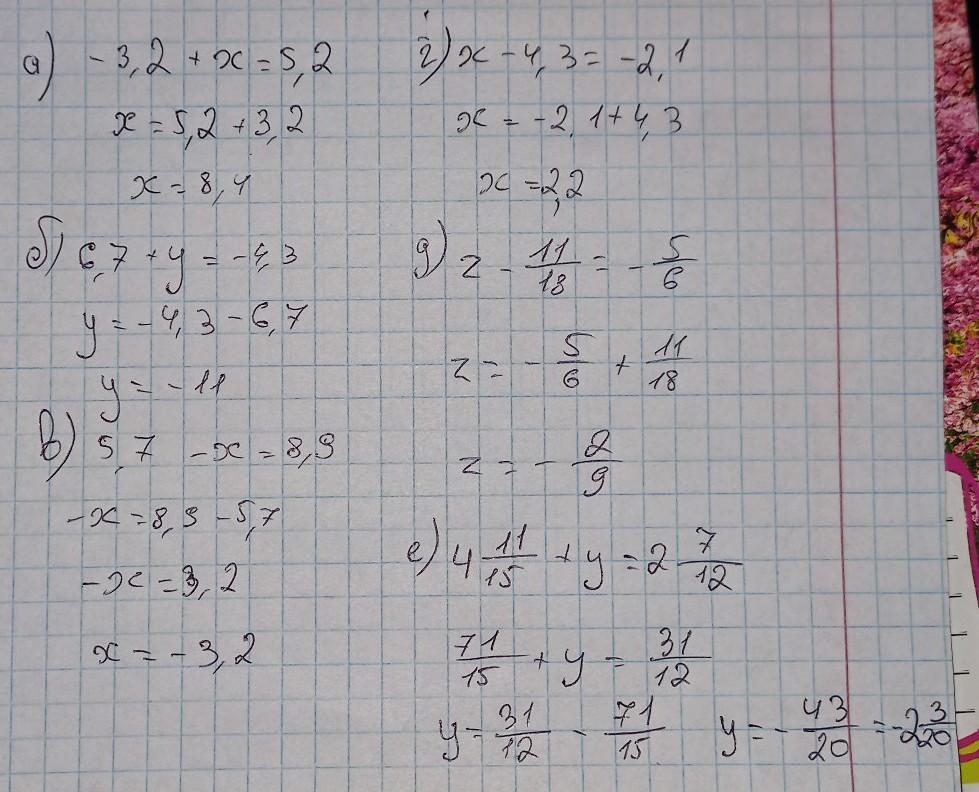 а) -3,2 + x = 5,2
x = 5,2 + 3,2
x = 8,4
б) 6,7 + y = -4,3
y = -4,3 - 6,7
y = -11
в) 5,7 - x = 8,9
-x = 8,9 - 5,7
-x = 3,2
x = -3,2
г) x - 4,3 = -2,1
x = -2,1 + 4,3
x = 2,2
д) z - 11/18 = - 5/6
z = - 5/6 + 11/18
z = - 2/9
е) 4 11/15 + y = 2 7/12
71/15 + y = 31/12
y = 31/12 - 71/15 y = - 43/20 = -2 3/20